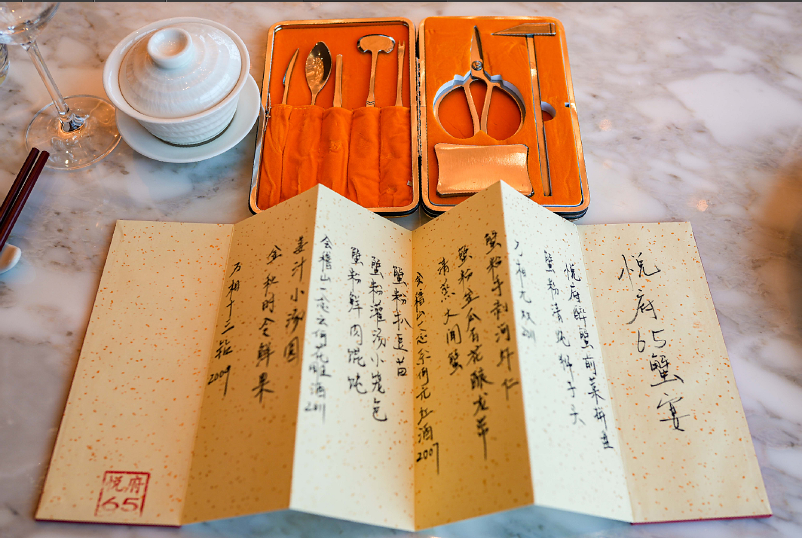 悦府65蟹宴
悦府醉蟹前菜拼盘
蟹粉清炖狮子头
蟹粉手剥河虾仁
蟹粉金瓜百花酿龙
清蒸大闸蟹
会稽山一念 花红酒2007
蟹粉扒豆苗
蟹粉灌汤小笼包
蟹粉鲜肉馄饨
会稽山一念 花雕酒2011
姜汁小汤圆
金秋时令鲜果
万相十二 2009
悦府
65